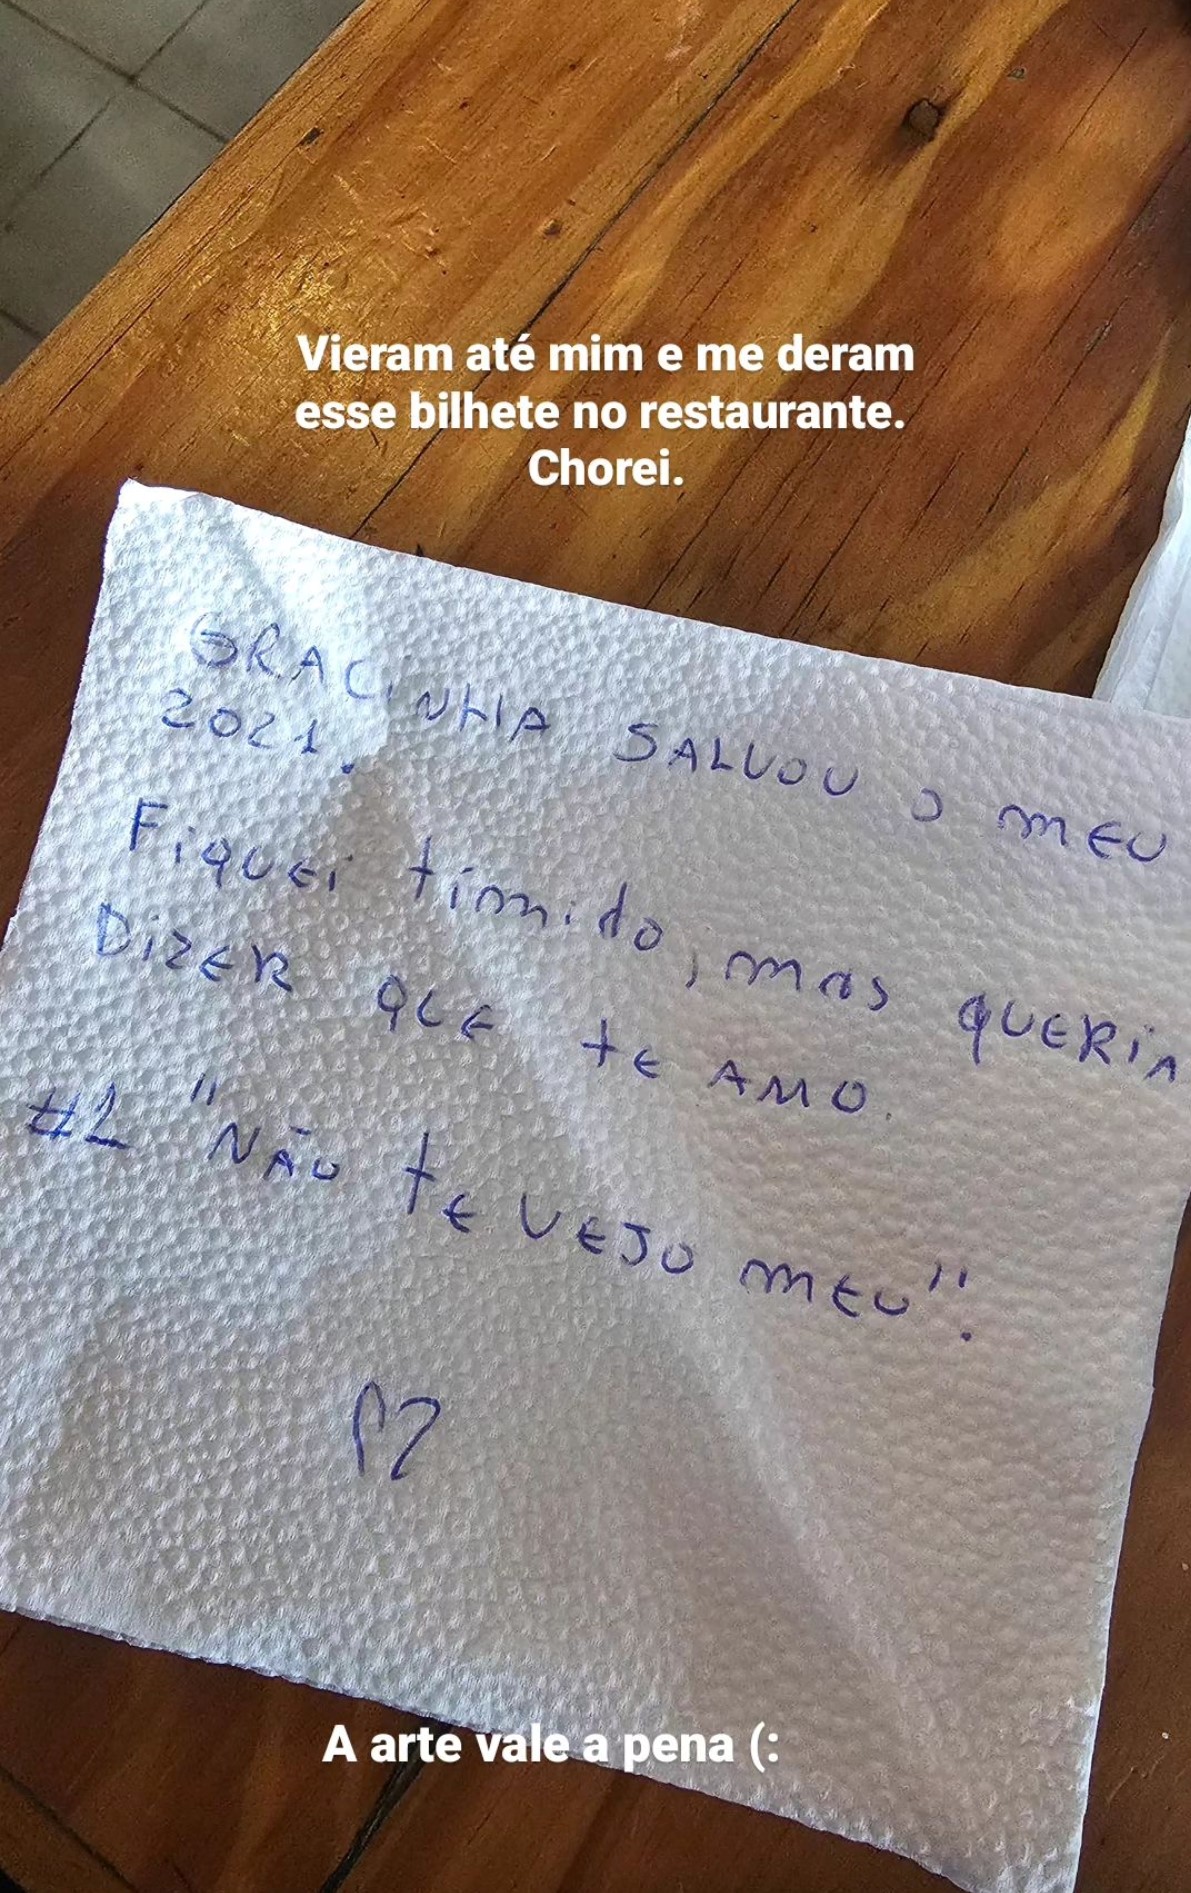 Vieram até mim e me deram
esse bilhete no restaurante.
Chorei.
GRACINHA SALVOU O MEU
2021.
Fiquei tímido, mas queria
Dizer que te amo.
#1 "Não te vejo meu".
A arte vale a pena (: